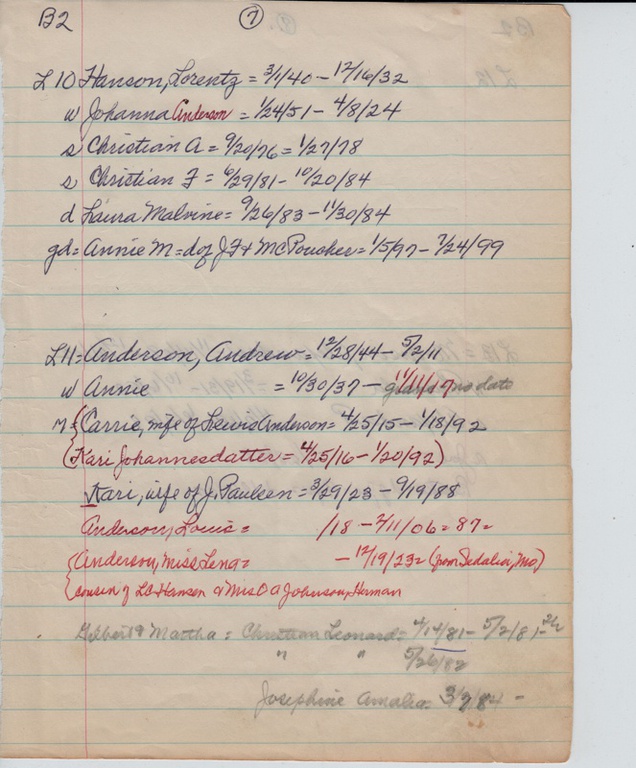 B2 7
L 10 Hanson, Lorentz = 3/1/40 - 12/16/32
w Johanna Anderson = 1/24/51 - 4/8/24
s Christian A = 9/20/76 = 1/27/78
s Christian F = 6/29/81 - 10/20/84
d Laura Malvine = 9/26/83 - 11/30/84
gd = Annie M = d of J F + M C Poucher = 1/5/97 - 7/24/99
L 11 = Anderson, Andrew = 12/28/44 - 5/2/11
w Annie = 10/30/37 - 11/11/17 no date
M = Carrie, wife of Lewis Anderson = 4/25/15 - 1/18/92
(Kari Johannesdatter = 4/25/16 - 1/20/92)
Kari, wife of J. Paulsen = 3/29/23 - 9/19/88
Anderson, Louis = /18 - 2/11/06 = 87 =
Anderson, Miss Lena = - 12/19/23 = (from Sedalia, Mo)
cousin of L C Hansen & Mrs O A Johnson, Herman
Gilbert & Martha = Christian Leonard = 4/14/81 - 5/2/81 -
" " 5/26/82
Josephine Amalia = 3/7/84 -